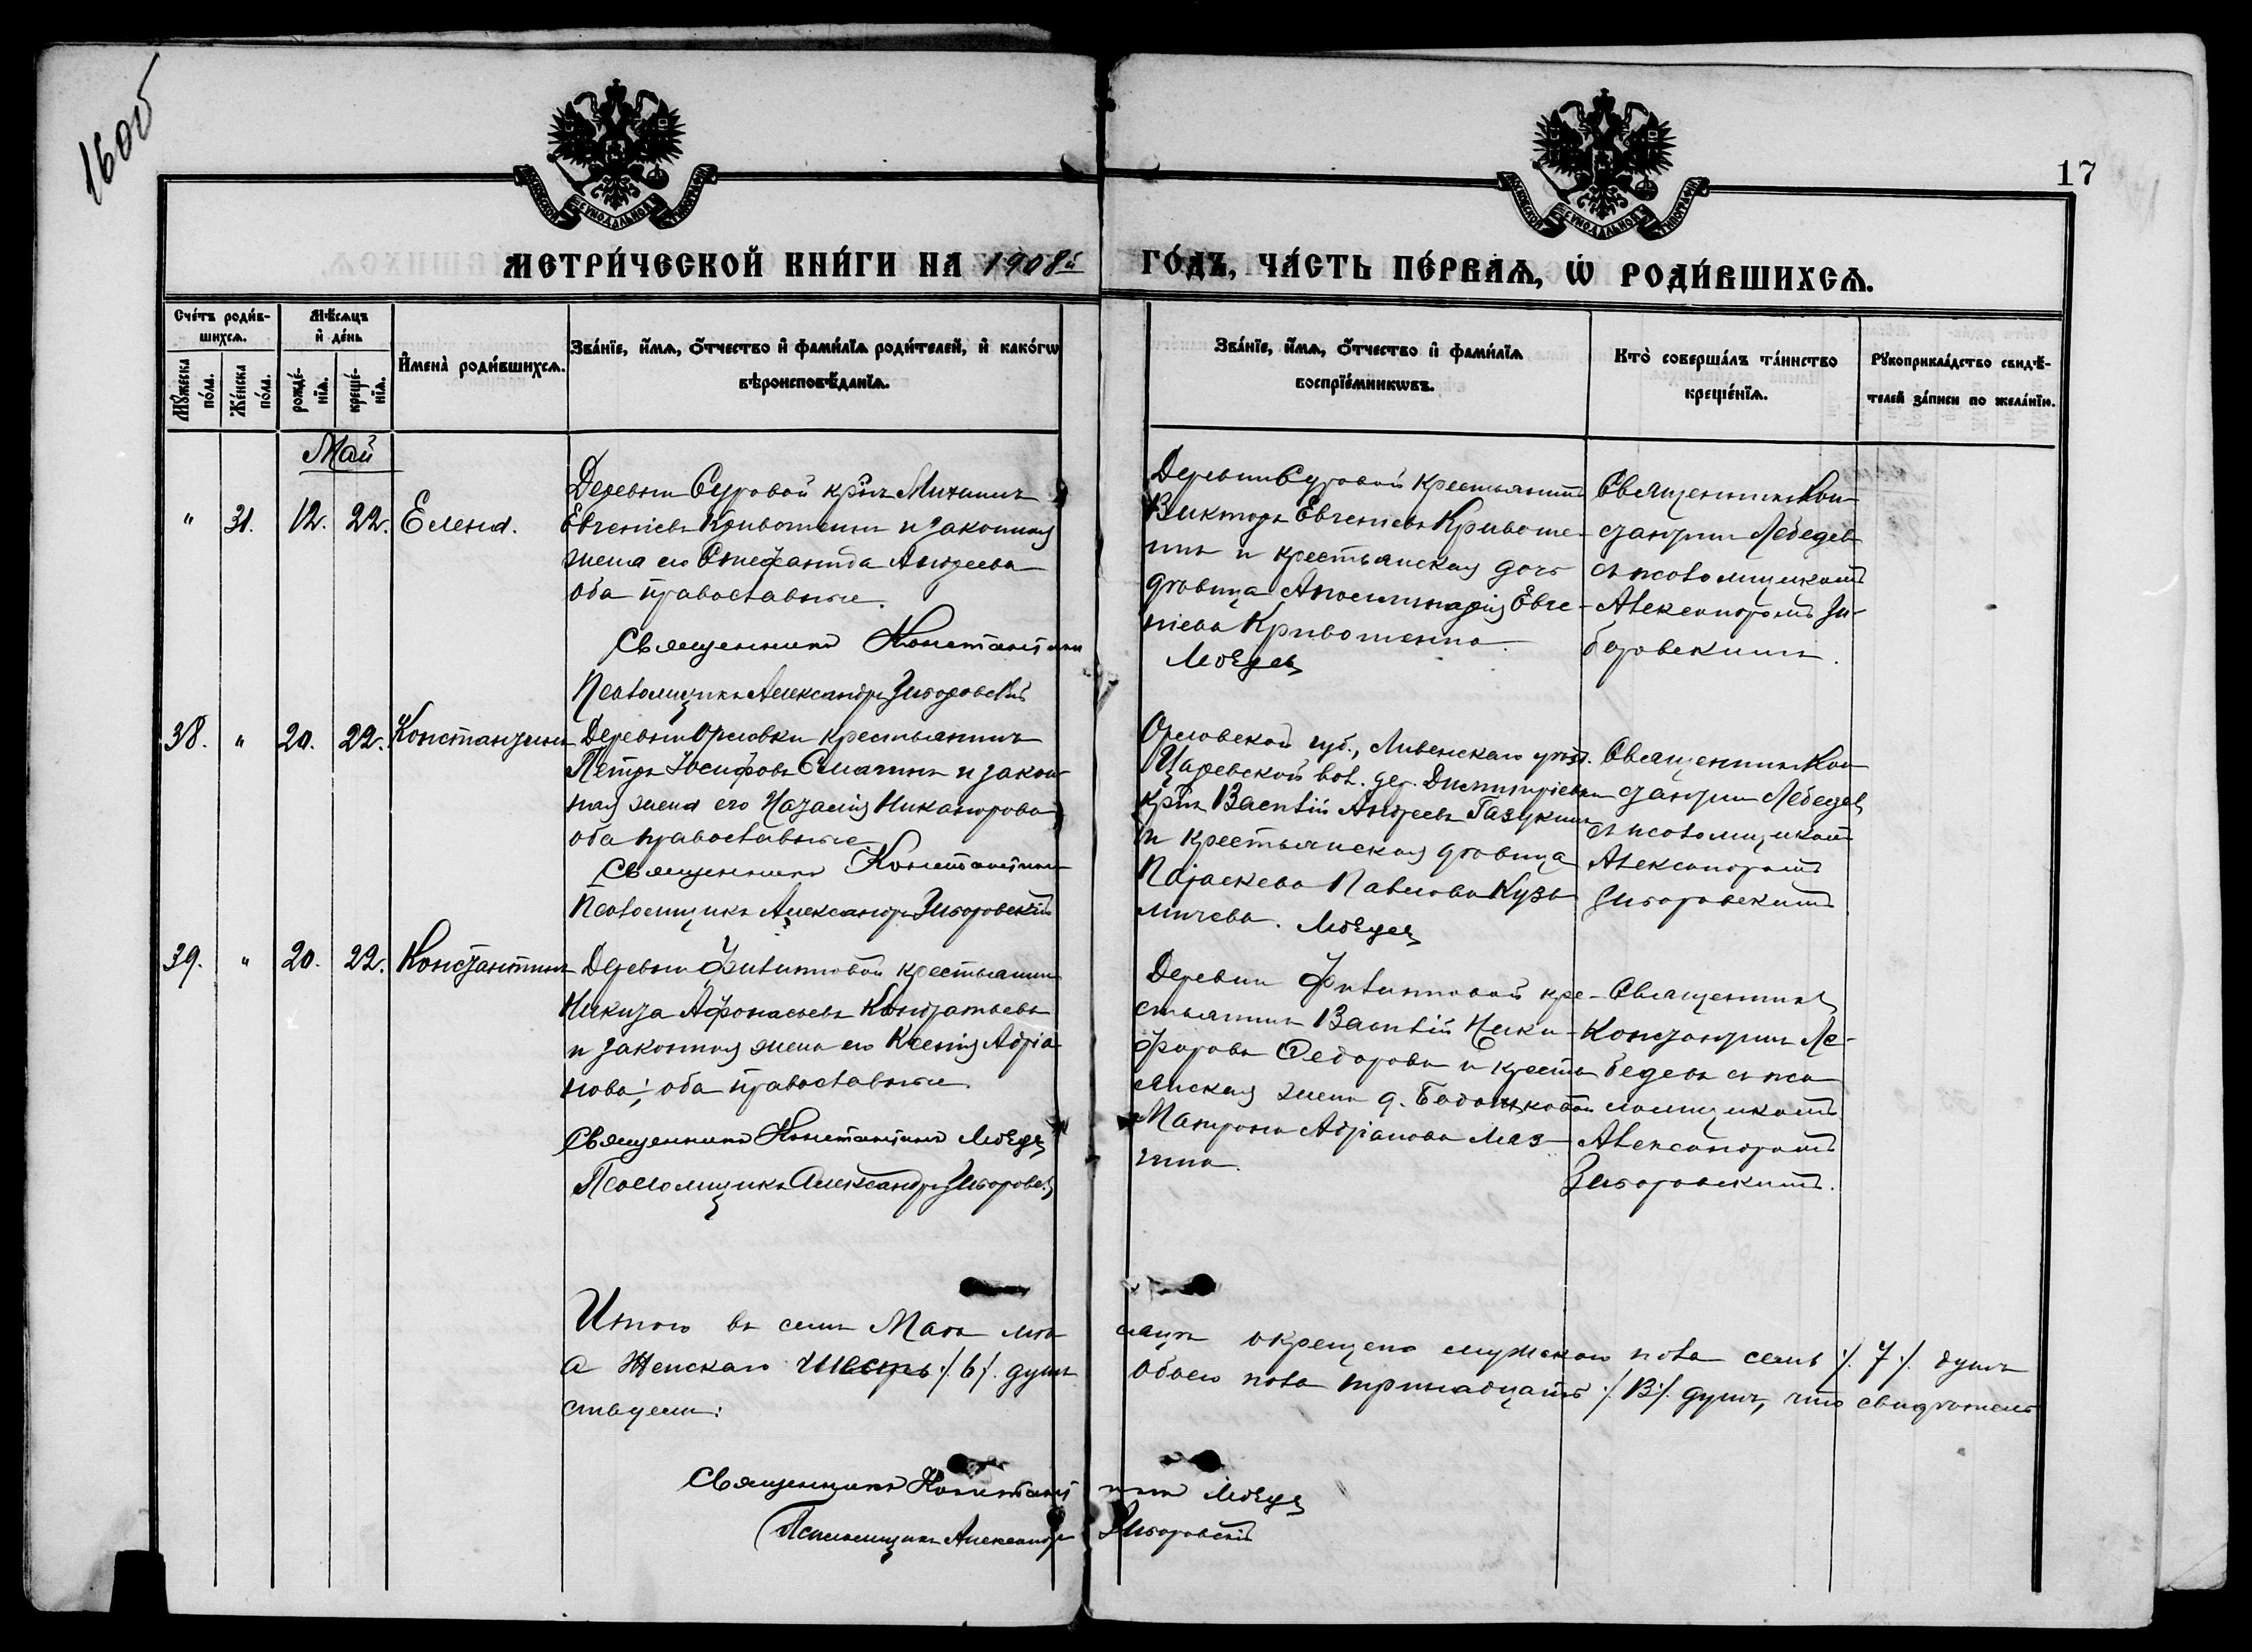 16об
17
МОСКОВСКОЙ СѴНОДАЛЬНОЙ ТИПОГРАФІИ
МОСКОВСКОЙ СѴНОДАЛЬНОЙ ТИПОГРАФІИ
МЕТРИ́ЧЕСКОЙ КНИ́ГИ НА 1908й
ГО́ДЪ, ЧА́СТЬ ПЕ́РВАѦ, Ѡ҆ РОДИ́ВШИХСѦ.
Сче́тъ роди́в-
шихсѧ.
Мꙋ́жеска по́ла.
Же́нска по́ла.
Мѣ́сѧцъ
и҆ де́нь
рожде́-
нїѧ.
креще́-
нїѧ.
И҆мена̀ роди́вшихсѧ.
Зва́нїе, и҆́мѧ, ѻ҆́тчество и҆ фами́лїѧ роди́телей, и҆ како́гѡ
вѣроисповѣ́данїѧ.
Зва́нїе, и҆́мѧ, ѻ҆́тчество и҆ фами́лїѧ
воспрїе́мникѡвъ.
Кто̀ соверша́лъ та́инство
креще́нїѧ.
Рꙋкоприкла́дство свидѣ́-
телей за́писи по жела́нїю.
Май
" 31. 12. 22. Елена.
Деревни Суровой крн҃ъ Михаилъ
Евгеніевъ Кривошеинъ и законная
жена его Стефанида Андреева
оба православные.
Священникъ Константинъ
Лебедевъ
Псаломщикъ Александръ Зигоровскій
Деревни Суровой крестьянинъ
Викторъ Евгеніевъ Кривоше-
инъ и крестьянская дочь
дѣвица Аполлинарія Евге-
ніева Кривошеина.
Священникъ Кон-
стантинъ Лебедевъ
съ псаломщикомъ
Александромъ Зи-
горовскимъ.
38. " 20. 22. Константинъ
Деревни Орловки крестьянинъ
Петръ Іосифовъ Смагинъ и закон-
ная жена его Наталія Никанорова
оба православные
Священникъ Константинъ
Лебедевъ
Псаломщикъ Александръ Зигоровскій
Орловской губ., Ливенскаго уѣзд.
вол. дер.
крн҃ъ Василій Андреевъ
и крестьянская дѣвица
Параскева Павлова Кузь-
мичева.
Священникъ Кон-
стантинъ Лебедевъ
съ псаломщикомъ
Александромъ
Зигоровскимъ
39. " 20. 22. Константинъ
Деревни Филипповой крестьянинъ
Никита Афонасьевъ Кондратьевъ
и законная жена его Ксенія Адріа-
нова; оба православные.
Священникъ Константинъ Лебедевъ
Псаломщикъ Александръ Зигоровскій
Деревни Филипповой кре-
стьянинъ Василій Ники-
форовъ Федоровъ и кресть-
янская жена д.
Матрона Адріанова
Священникъ
Константинъ Ле-
бедевъ съ пса-
ломщикомъ
Александромъ
Зигоровскимъ.
Итого въ семъ Маѣ мѣ- сяцѣ окрещено мужского пола семь ./. 7 ./. душъ
а Женскаго шесть ./. 6 ./. душъ обоего пола тринадцать ./. 13 ./. душъ, что свидѣтель-
ствуемъ:
Священникъ Константинъ Лебедевъ
Псаломщикъ Александръ Зигоровскій